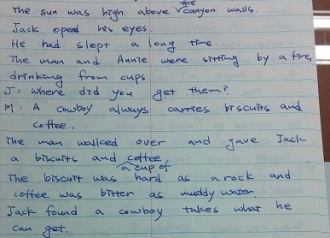 The sun was high above the canyon walls.
Jack oped his eyes.
He had slept a long time.
The man and Annie were sitting by a fire,
drinking from cups.
J: Where did you get them?
M: A cowboy always carries biscuits and
coffee.
The man walked over and gave Jack
a biscuits and a cup of coffee.
The biscuit was hard as a rock and
coffee was bitter as muddy water.
Jack found a cowboy takes what he
can get.